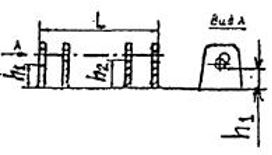 L
Вид А
А
h1
h2
h1